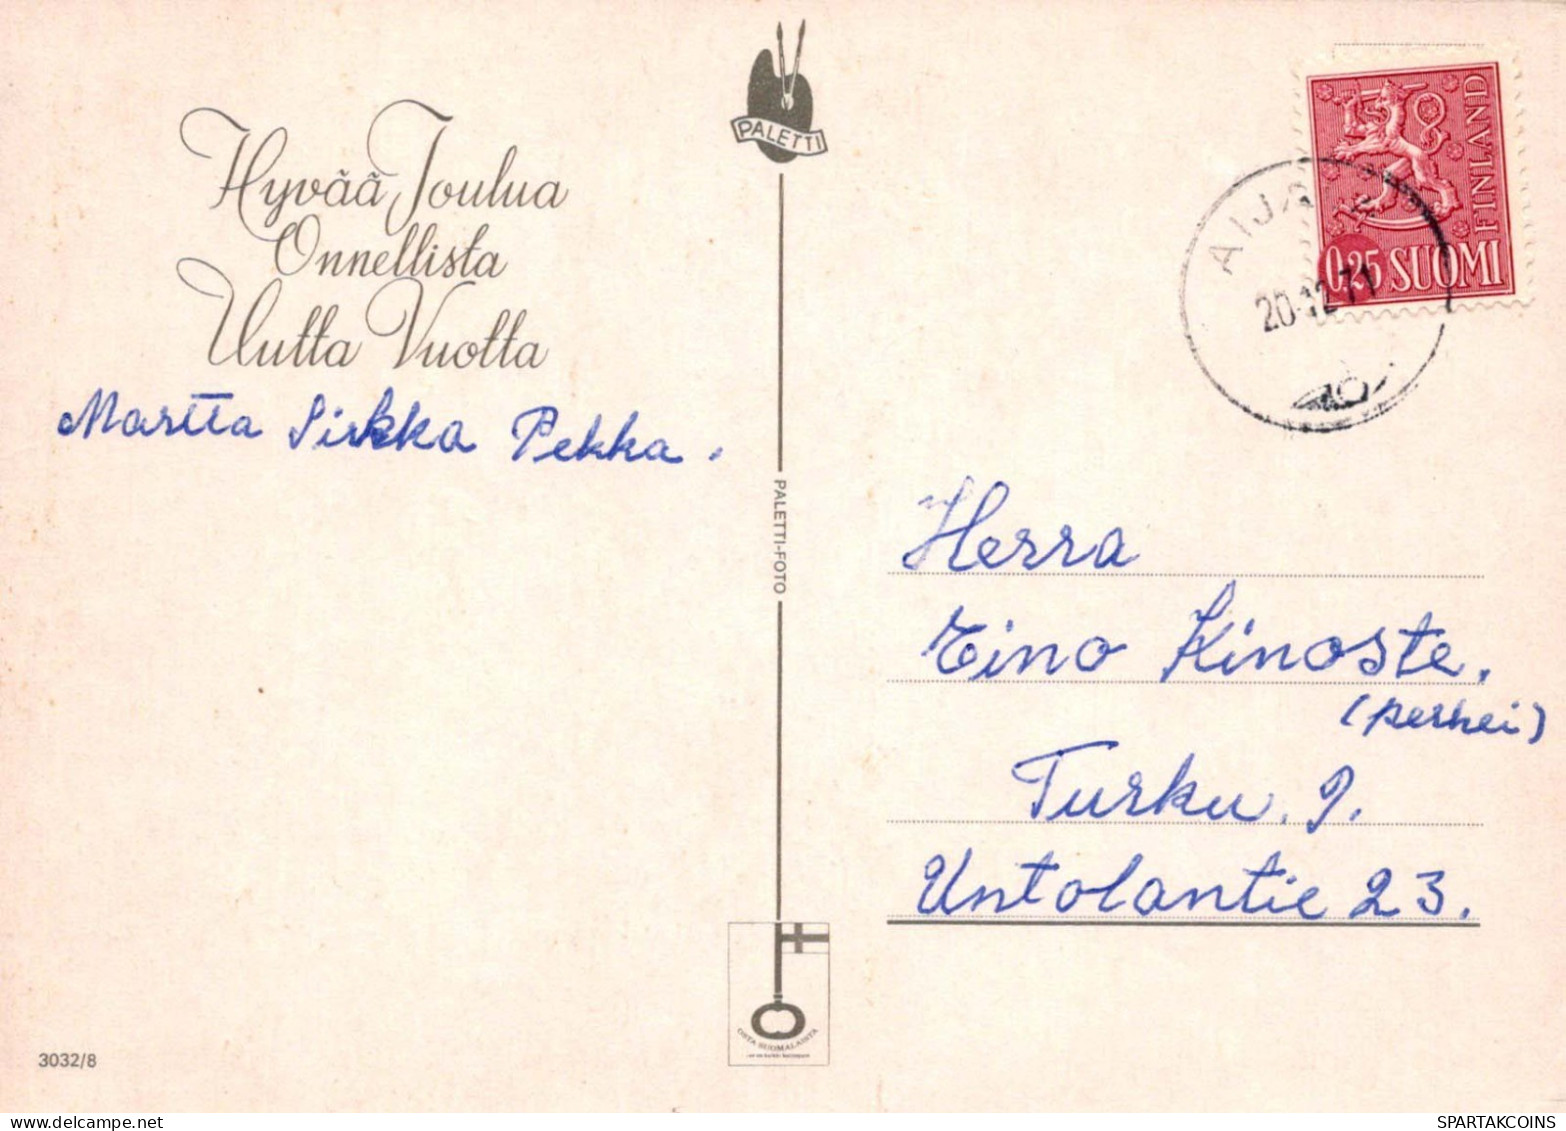 PALETTI
Hyvää Joulua
Onnellista
Uutta Vuotta
Martta Sirkka Pekka.
PALETTI-FOTO
OSTA SUOMALAISTA
3032/8
FINLAND
0,25 SUOMI
20.12.71
Herra
Eino Kinoste.
(perhei)
Turku. 9.
Untolantie 23.
SPARTAKCOINS